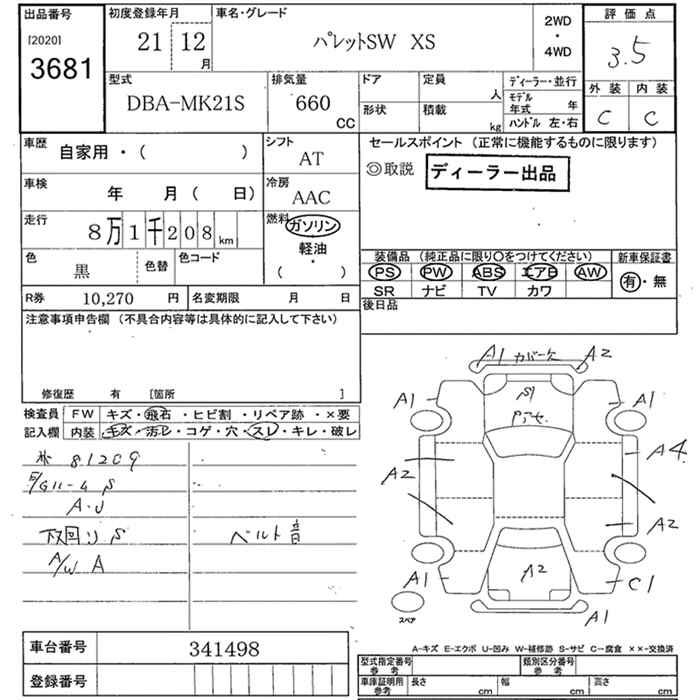 出品番号
[2020]
3681
初度登録年月
21 12 月
車名・グレード
パレットSW XS
2WD
・
4WD
評価点
3.5
外装 内装
C C
型式
DBA-MK21S
排気量
660
CC
ドア
形状
定員
人
積載
kg
ディーラー・並行
モデル年式 年
ハンドル 左・右
車歴
自家用・( )
シフト
AT
車検
年 月( 日)
冷房
AAC
走行
8万1千208km
燃料
ガソリン
軽油
・
( )
色
黒
色替
色コード
R券 10,270 円
名変期限 月 日
セールスポイント (正常に機能するものに限ります)
◎取説
ディーラー出品
装備品 (純正品に限り○をつけてください)
PS PW ABS エアB AW
SR ナビ TV カワ
新車保証書
有・無
後日品
注意事項申告欄 (不具合内容等は具体的に記入して下さい)
修復歴 有 [箇所 ]
検査員
記入欄
FW キズ・飛石・ヒビ割・リペア跡・×要
内装 キズ・汚レ・コゲ・穴・スレ・キレ・破レ
81209
A・U
下回り S
ベルト音
A/W A
A1 カバー欠 A2
A1
A1
A2
A4
A2
A1
A2
C1
A1
スペア
車台番号
341498
登録番号
A-キズ E-エクボ U-凹み W-補修跡 S-サビ C-腐食 ××-交換済
型式指定番号
参考
類別区分番号
参考
車庫証明用
参考
長さ cm
幅 cm
高さ cm